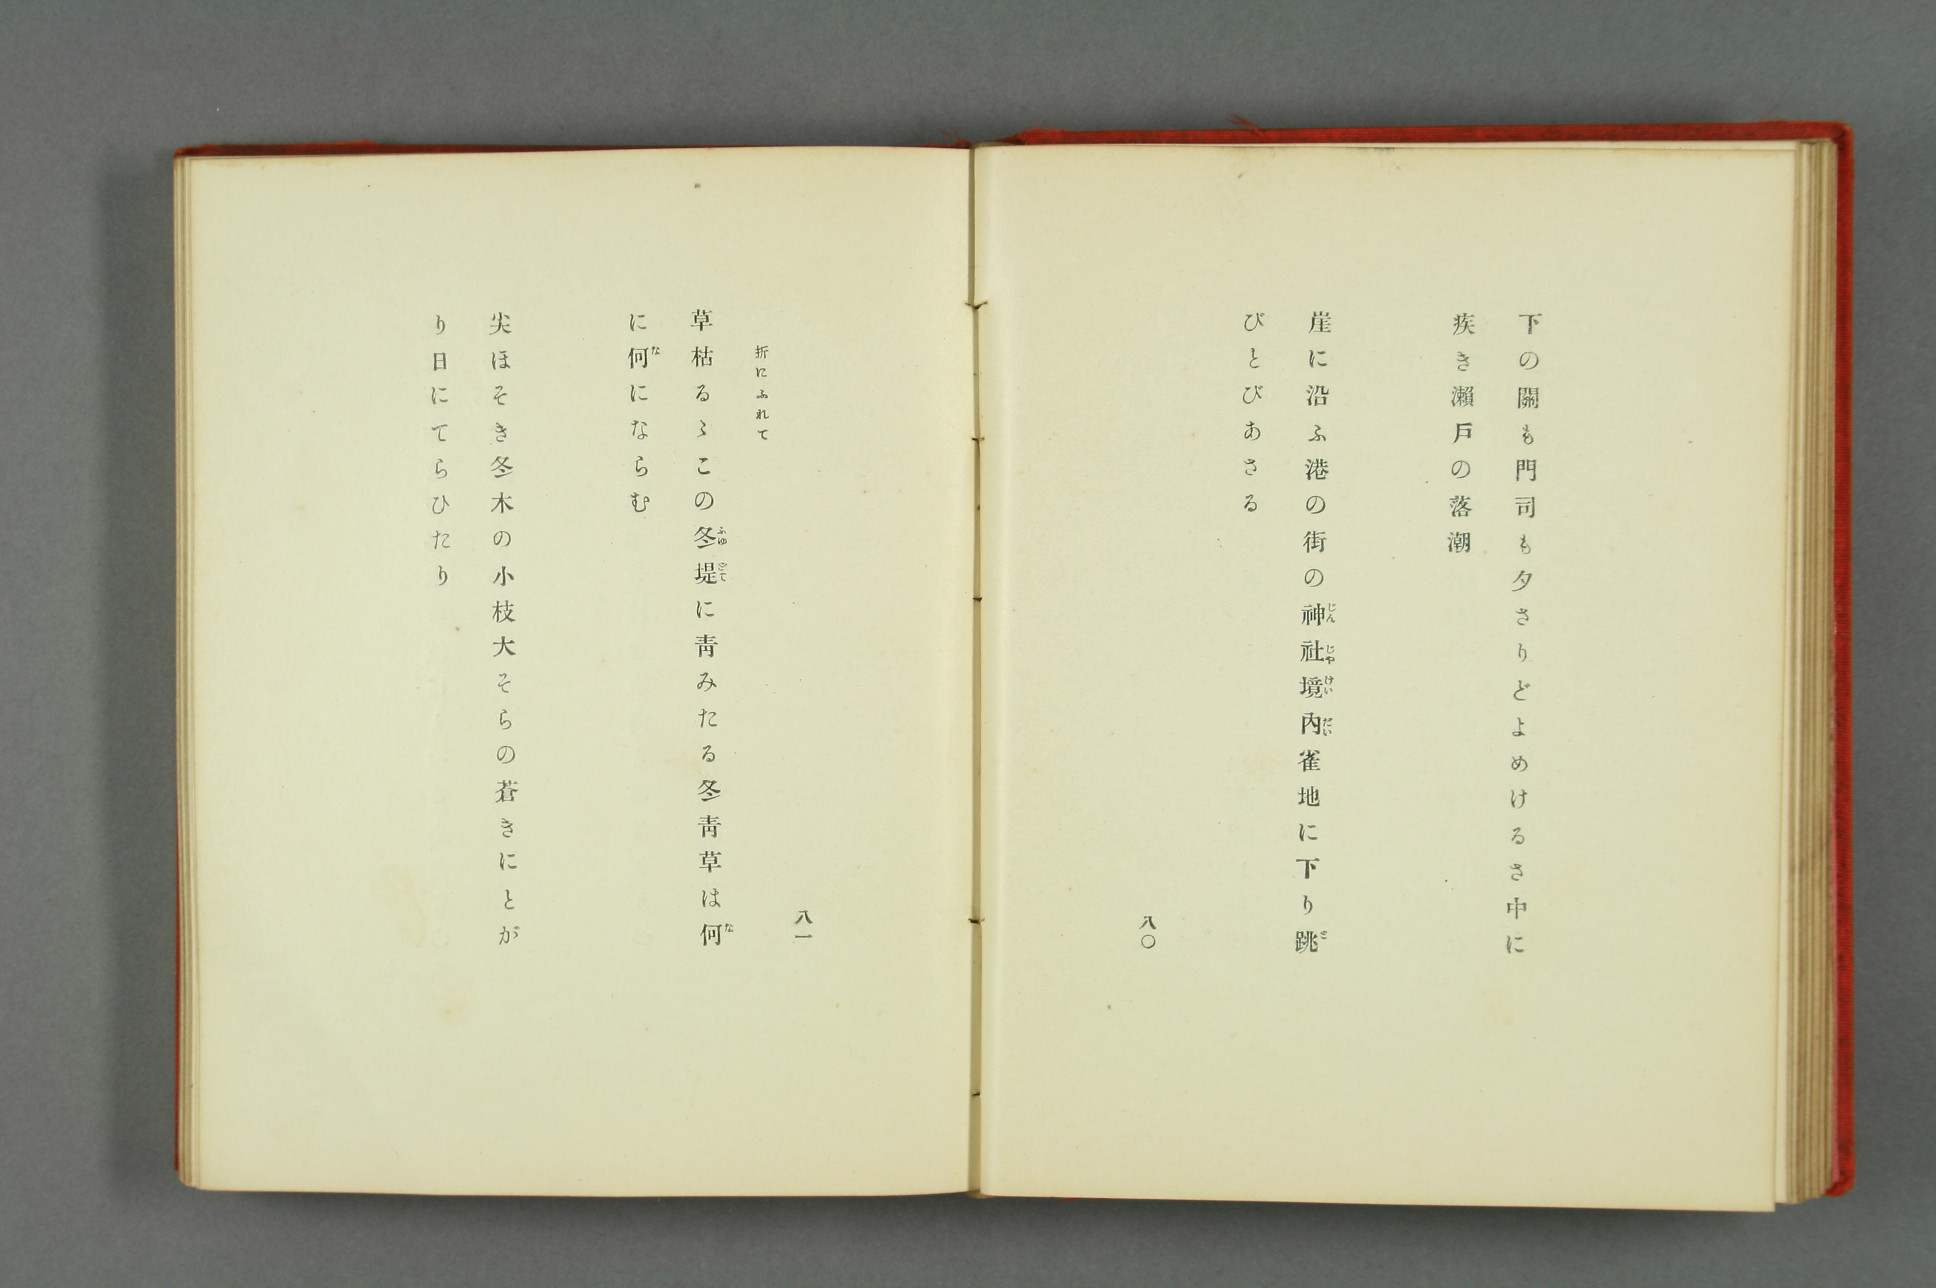 下の關も門司も夕さりどよめけるさ中に
疾き瀨戶の落潮
崖に沿ふ港の街の神社境內雀地に下り跳
びとびあさる
八〇
折にふれて
草枯るゝこの冬堤に靑みたる冬靑草は何
に何にならむ
尖ほそき冬木の小枝大そらの蒼きにとが
り日にてらひたり
八一